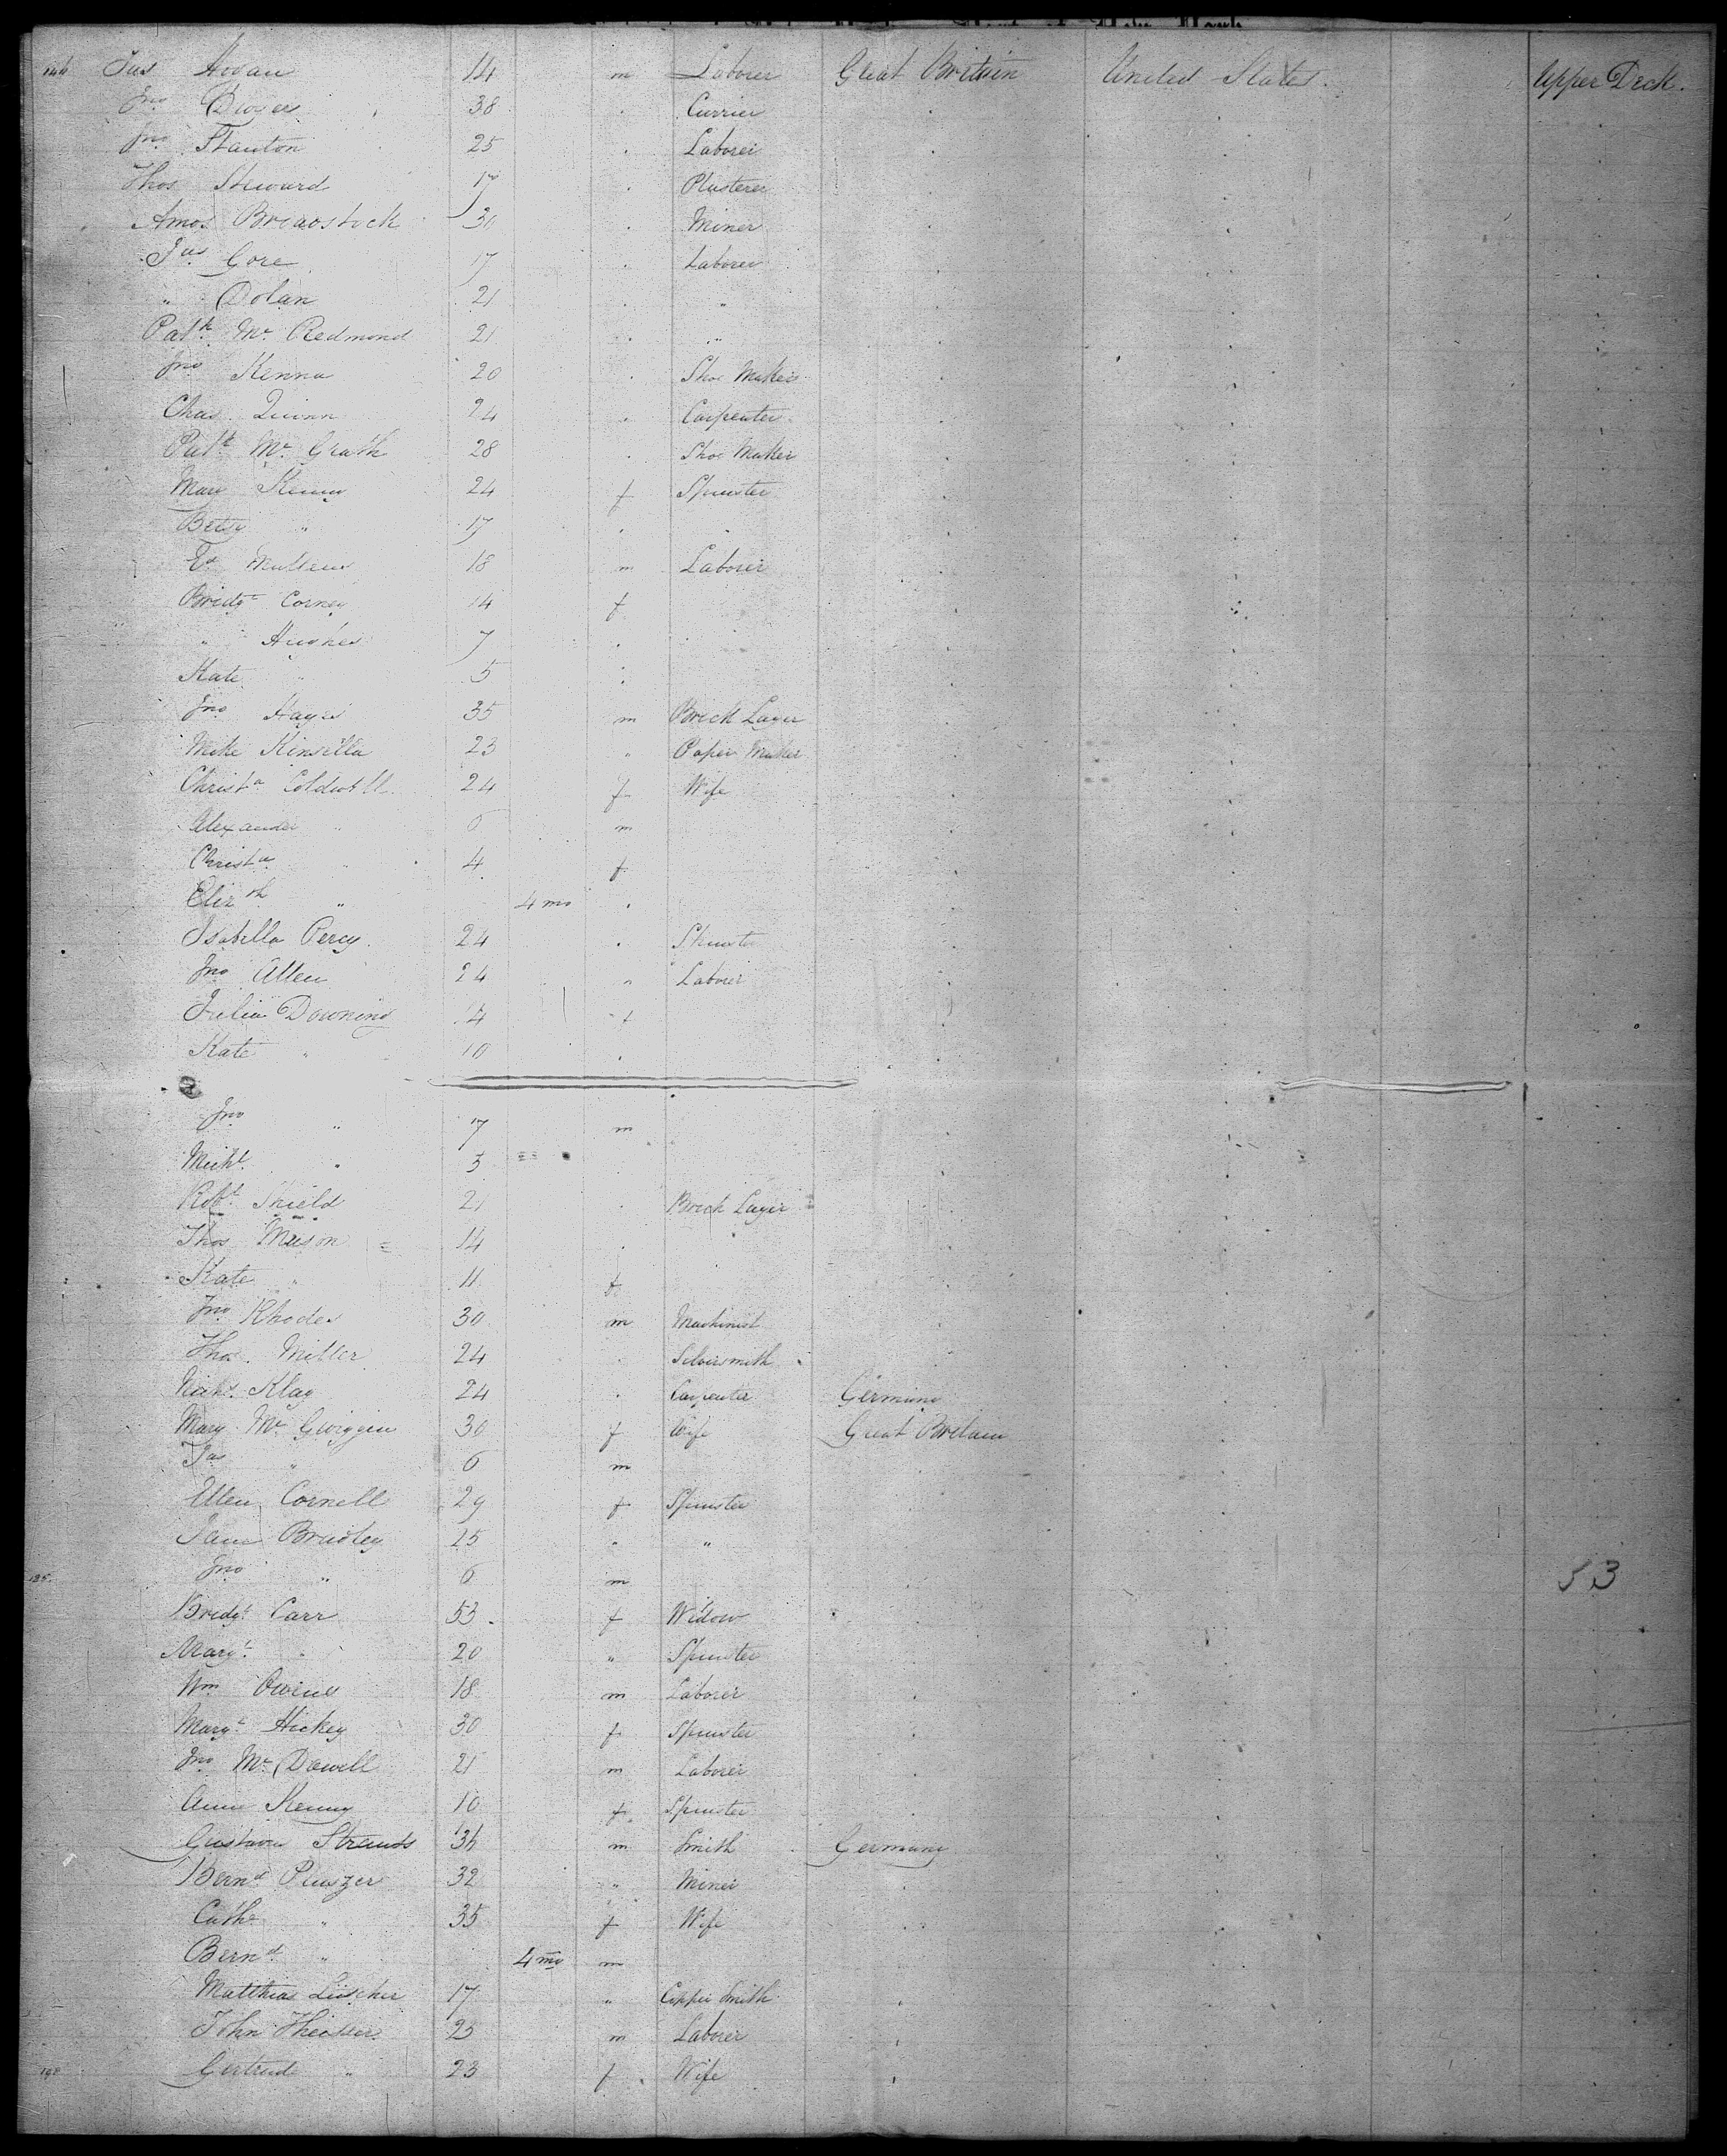 Jas Hogan 14 m Laborer Great Britain United States. Upper Deck.
Jno Dwyer 38 . Currier
Jno Stanton 25 . Laborer
Thos Steward 17 . Plasterer
Amos 30 . Miner
Jas Gore 17 . Laborer
" Dolan 21 . "
Patk Mc Redmond 21 . "
Jno Kenna 20 . Shoe Maker
Chas Quinn 24 . Carpenter
Patk Mc Grath 28 . Shoe Maker
Mary Kenny 24 f Spinster
Betsy " 17 . .
Ed Mullens 18 m Laborer
Bridgt Corney 14 f
" Hughes 7 .
Kate " 5 .
Jno Hayes 35 m Brick Layer
Mike Kinsella 23 " Paper Maker
Christa Coldwell 24 f Wife
Alexander " 6 m
Christa " 4 f
Elizth " 4 mo .
Isabella Percy 24 . Spinster
Jno Allen 24 " Laborer
Julia Downing 14 f
Kate " 10 .
Jno " 7 m
Michl " 5
Robt Shield 21 . Brick Layer
Thos Mason 14 .
Kate " 11 f
Jno Rhodes 30 m Machinist
Thos. Miller 24 . Silversmith
Klag 24 . Carpenter Germany
Mary Mc Gwiggin 30 f Wife Great Britain
Jas " 6 m
Ellen Cornell 29 f Spinster
Jane Bradley 25 " "
Jno " 6 m 53
Bridgt Carr 53 f Widow
Margt " 20 " Spinster
Wm Owens 18 m Laborer
Margt Hickey 30 f Spinster
Jno Mc Dowell 21 m Laborer
Ann Kenny 10 f Spinster
Gustave 36 m Smith Germany
Bernd 32 " Miner
Cathe " 35 f Wife
Bernd " 4 mo m
Matthias Luscher 17 " Copper Smith
John Theisser 25 m Laborer
Gertrude " 23 f Wife